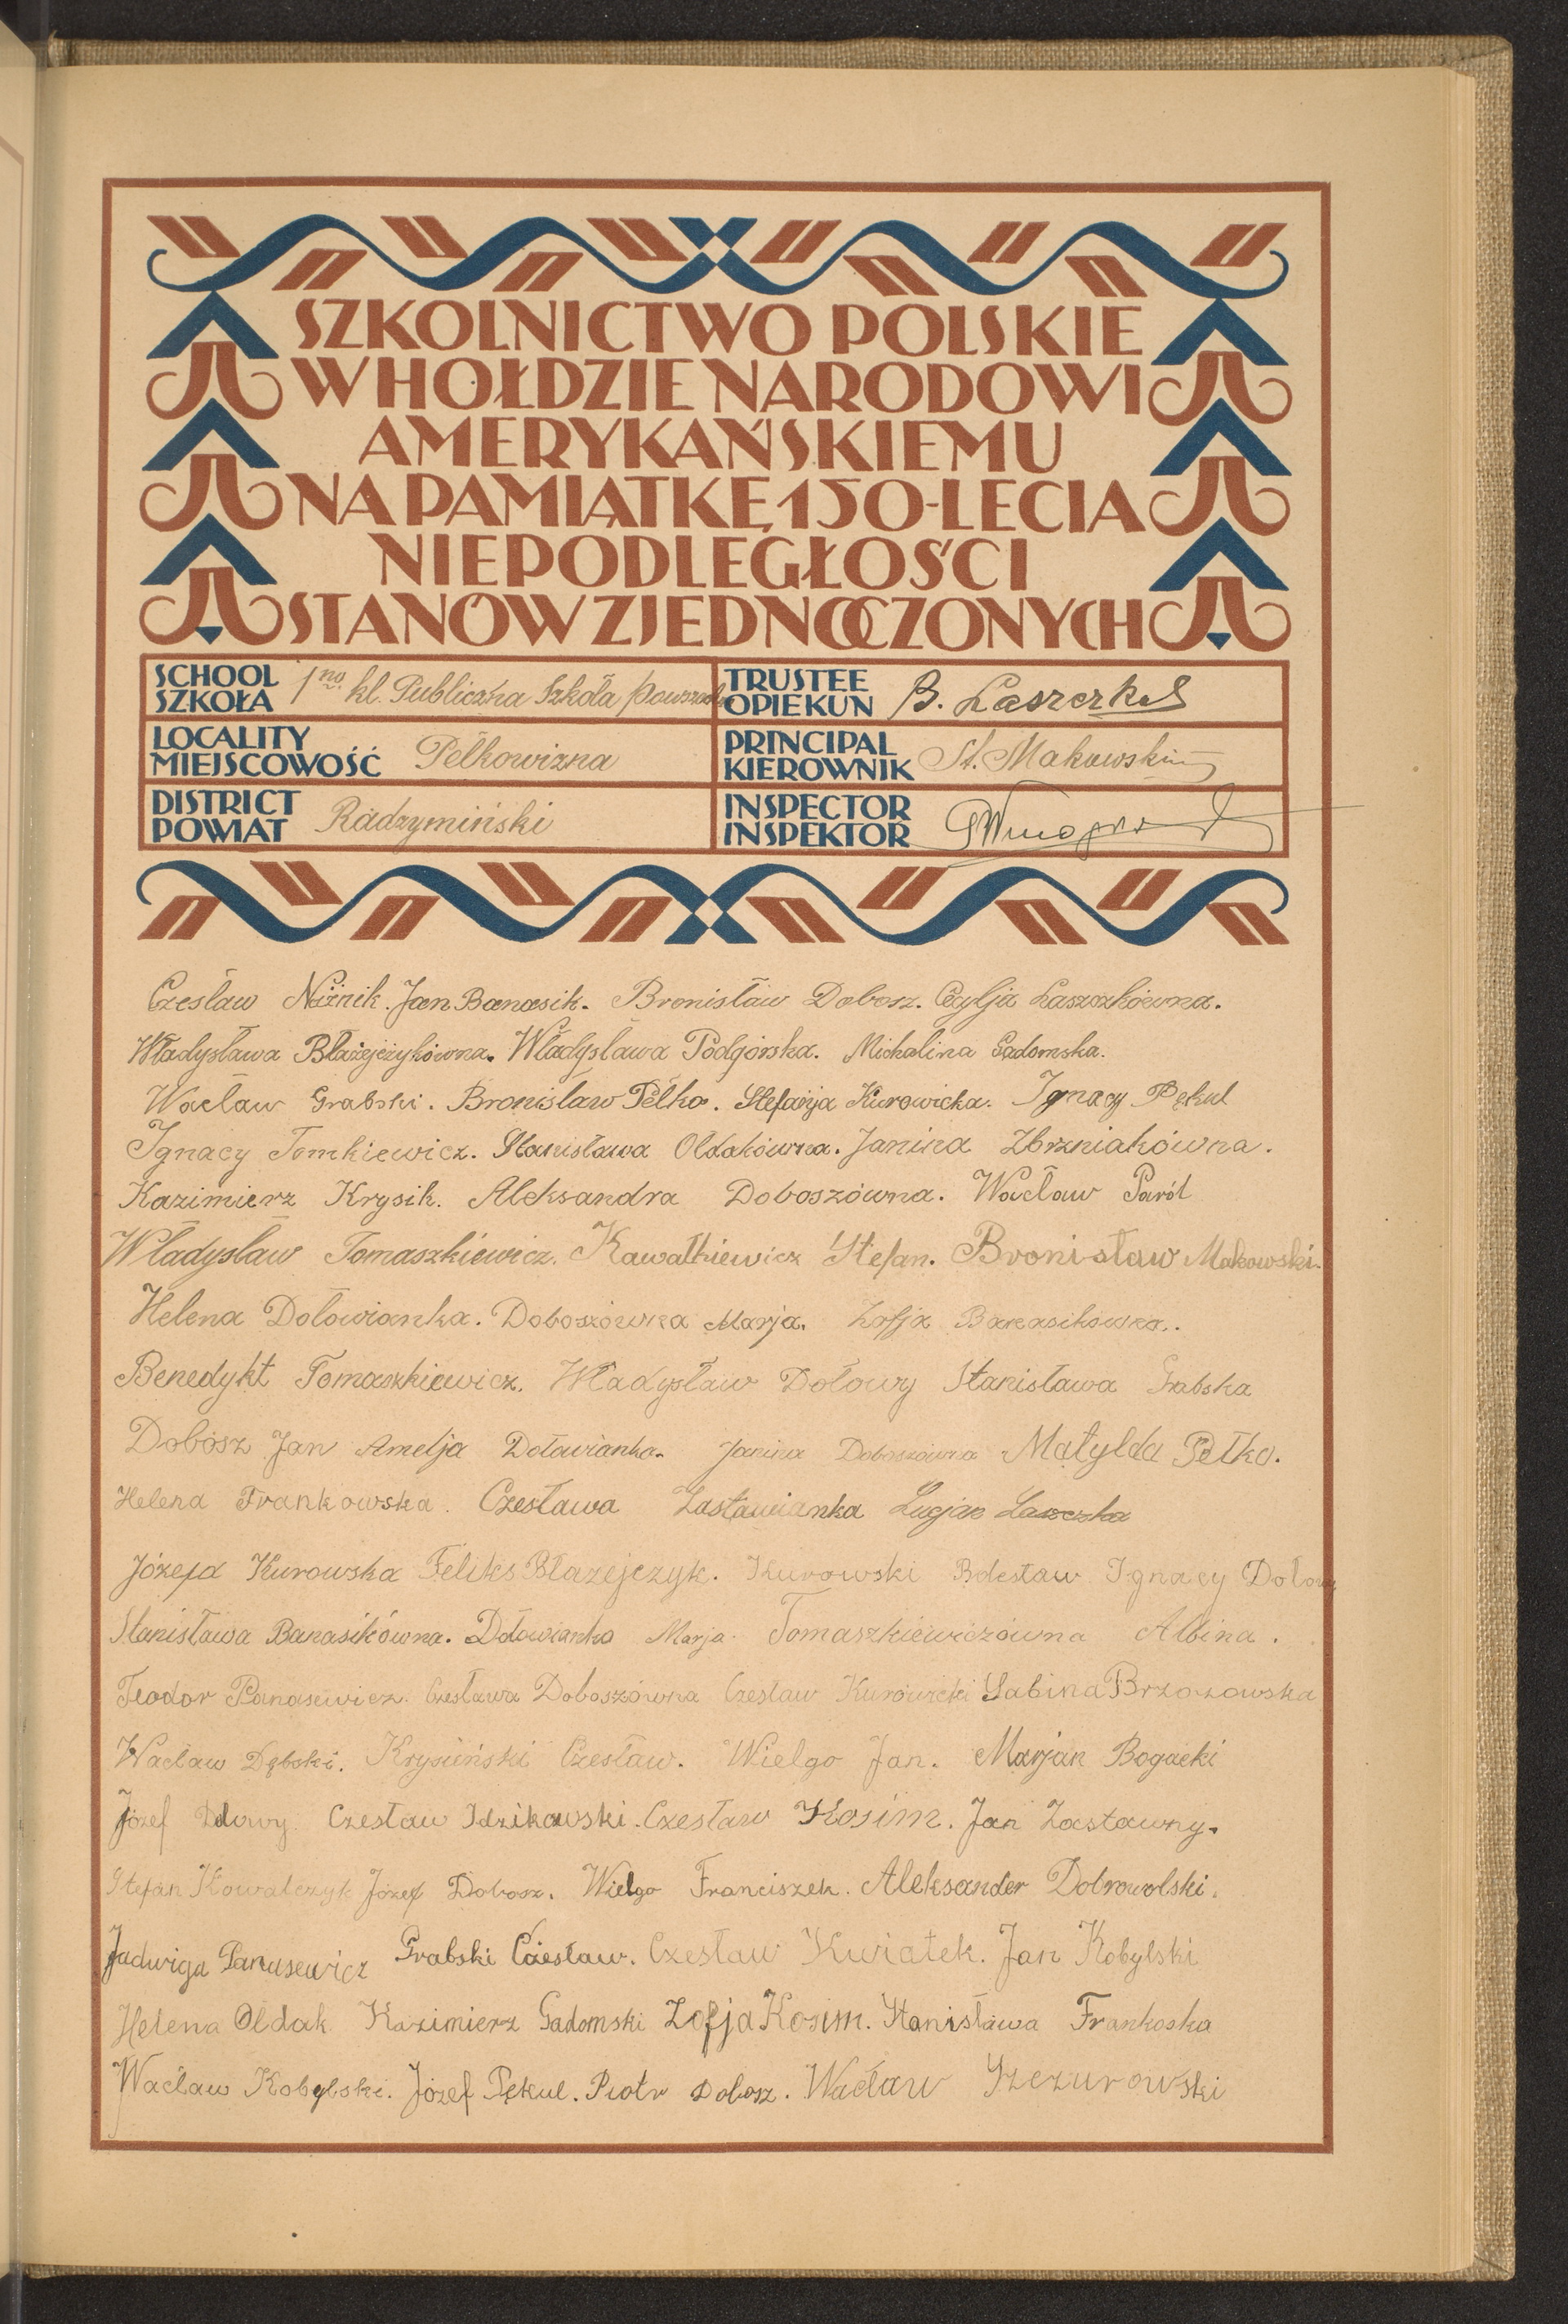 SZKOLNICTWO POLSKIE
W HOŁDZIE NARODOWI
AMERYKAŃSKIEMU
NA PAMIĄTKĘ 150-LECIA
NIEPODLEGŁOŚCI
STANÓW ZJEDNOCZONYCH
SCHOOL
SZKOŁA 1no kl. Publiczna Szkoła Powszechna
TRUSTEE
OPIEKUN B. Laszczka
LOCALITY
MIEJSCOWOŚĆ Pełkowizna
PRINCIPAL
KIEROWNIK St. Makowski
DISTRICT
POWIAT Radzymiński
INSPECTOR
INSPEKTOR
Czesław Niźnik. Jan Banasik. Bronisław Dobosz. Cecylja Laszczkówna.
Władysława Błażejczykówna. Władysława Podgórska. Michalina Gadomska.
Wacław Grabski. Bronisław Pełko. Stefanja Kurowicka. Ignacy Pękul
Ignacy Tomkiewicz. Stanisława Ołdakówna. Janina Zbrzniakówna.
Kazimierz Krysik. Aleksandra Doboszówna. Wacław Paról
Władysław Tomaszkiewicz. Kawałkiewicz Stefan. Bronisław Makowski.
Helena Dołowianka. Doboszówna Marja. Zofja Banasikówna.
Benedykt Tomaszkiewicz. Władysław Dołowy Stanisława Grabska
Dobosz Jan Amelja Dołowianka. Janina Doboszówna Matylda Pełko.
Helena Frankowska. Czesława Zastawianka Lucjan Laszczka
Józefa Kurowska Feliks Błażejczyk. Kurowski Bolesław Ignacy Dołowy
Stanisława Banasikówna. Dołowianka Marja. Tomaszkiewiczówna Albina.
Teodor Panasewicz. Czesława Doboszówna Czesław Kurowicki Sabina Brzozowska
Wacław Dębski. Krysieński Czesław. Wielgo Jan. Marjan Bogacki
Józef Dołowy. Czesław Idzikowski. Czesław Kosim. Jan Zastawny.
Stefan Kowalczyk Józef Dobosz. Wielgo Franciszek. Aleksander Dobrowolski.
Jadwiga Panusewicz Grabski Czesław. Czesław Kwiatek. Jan Kobylski
Helena Ołdak. Kazimierz Gadomski Zofja Kosim. Stanisława Frankoska
Wacław Kobylski. Józef Pękul. Piotr Dobosz. Wacław Szczurowski